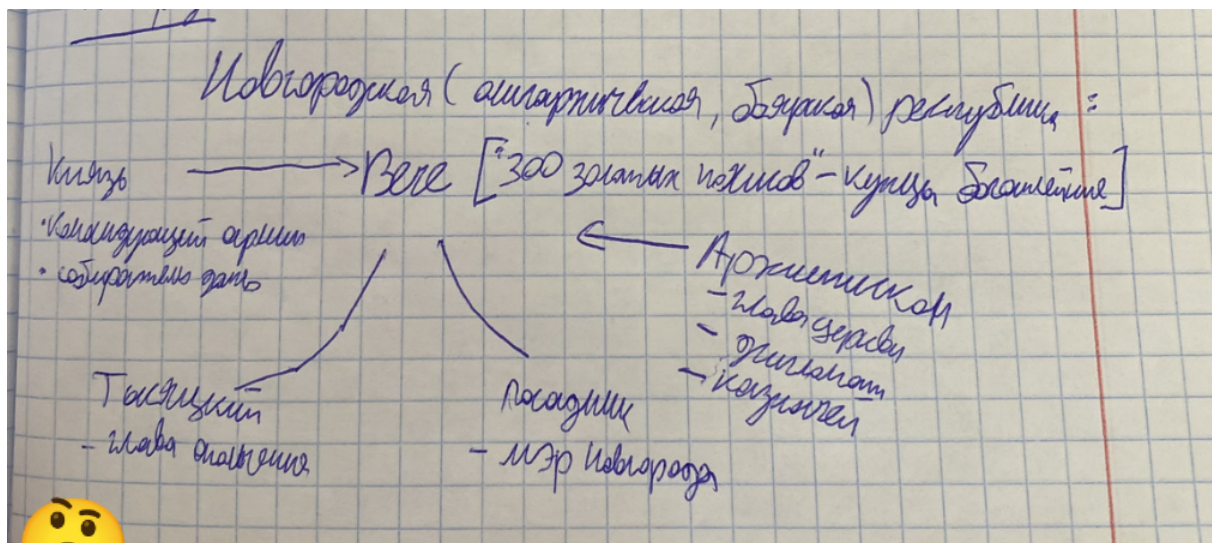 Новгородская (олигархическая, боярская) республика =
Князь → Вече ["300 золотых поясов" – купцы богатейшие]
• Командующий армии
• собиратель дань
← Архиепископ
– глава церкви
– дипломат
– казначей
Тысяцкий
– глава ополчения
Посадник
– мэр Новгорода